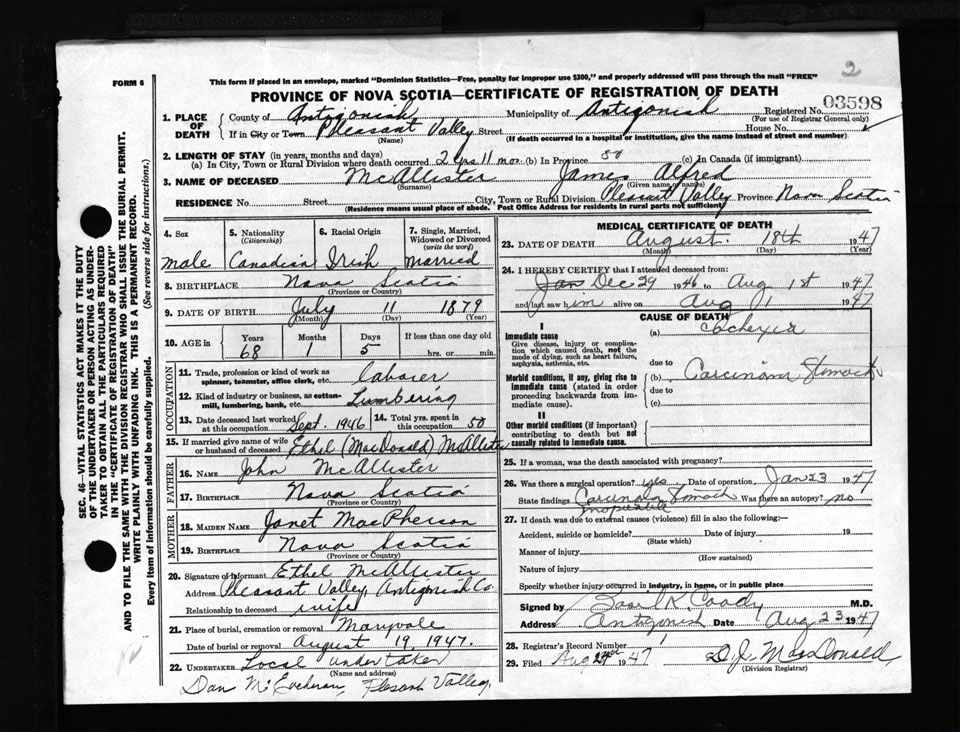 2
This form if placed in an envelope, marked "Dominion Statistics—Free, penalty for improper use $300," and properly addressed will pass through the mail "FREE"
FORM 6
PROVINCE OF NOVA SCOTIA—CERTIFICATE OF REGISTRATION OF DEATH
1. PLACE OF DEATH
County of Antigonish Municipality of Antigonish Registered No. 03598
(For use of Registrar General only)
If in City or Town Pleasant Valley Street House No.
(Name) (If death occurred in a hospital or institution, give the name instead of street and number)
2. LENGTH OF STAY (in years, months and days)
(a) In City, Town or Rural Division where death occurred 2 yrs 11 mon. (b) In Province 50 (c) In Canada (if immigrant)
3. NAME OF DECEASED McAllister James Alfred
(Surname) (Given name or names)
RESIDENCE No. Street City, Town or Rural Division Pleasant Valley Province Nova Scotia
(Residence means usual place of abode. Post Office Address for residents in rural parts not sufficient)
SEC. 46—VITAL STATISTICS ACT MAKES IT THE DUTY
OF THE UNDERTAKER OR PERSON ACTING AS UNDER-
TAKER TO OBTAIN ALL THE PARTICULARS REQUIRED
IN THE "CERTIFICATE OF REGISTRATION OF DEATH"
AND TO FILE THE SAME WITH THE DIVISION REGISTRAR WHO SHALL ISSUE THE BURIAL PERMIT.
WRITE PLAINLY WITH UNFADING INK. THIS IS A PERMANENT RECORD.
Every item of information should be carefully supplied. (See reverse side for instructions.)
4. Sex
male
5. Nationality
(Citizenship)
Canadian
6. Racial Origin
Irish
7. Single, Married, Widowed or Divorced
(write the word)
married
8. BIRTHPLACE Nova Scotia
(Province or Country)
9. DATE OF BIRTH July 11 1879
(Month) (Day) (Year)
10. AGE in Years Months Days If less than one day old
68 1 5 hrs. or min.
OCCUPATION
11. Trade, profession or kind of work as
spinner, teamster, office clerk, etc. labourer
12. Kind of industry or business, as cotton-
mill, lumbering, bank, etc. Lumbering
13. Date deceased last worked at this occupation Sept. 1946
14. Total yrs. spent in this occupation 50
15. If married give name of wife
or husband of deceased Ethel (MacDonald) McAllister
FATHER
16. NAME John McAllister
17. BIRTHPLACE Nova Scotia
MOTHER
18. MAIDEN NAME Janet MacPherson
19. BIRTHPLACE Nova Scotia
(Province or Country)
20. Signature of Informant Ethel McAllister
Address Pleasant Valley, Antigonish Co.
Relationship to deceased wife
21. Place of burial, cremation or removal Maryvale
Date of burial or removal August 19, 1947.
22. UNDERTAKER Local undertaker
(Name and address)
Dan McEachern, Plesant Valley.
MEDICAL CERTIFICATE OF DEATH
23. DATE OF DEATH August 18th 1947
(Month) (Day) (Year)
24. I HEREBY CERTIFY that I attended deceased from:
Jan Dec 29 1946 to Aug 1st 1947
and last saw him alive on Aug 1 1947
CAUSE OF DEATH
I
Immediate cause
Give disease, injury or complica-
tion which caused death, not the
mode of dying, such as heart failure,
asphyxia, asthenia, etc.
(a) Cachexia
due to
Morbid conditions, if any, giving rise to
immediate cause (stated in order
proceeding backwards from im-
mediate cause).
(b) Carcinoma Stomach
due to
(c)
II
Other morbid conditions (if important)
contributing to death but not
causally related to immediate cause.
25. If a woman, was the death associated with pregnancy?
26. Was there a surgical operation? yes Date of operation, Jan 23 1947
State findings Carcinoma Stomach Was there an autopsy? no
inoperable
27. If death was due to external causes (violence) fill in also the following:—
Accident, suicide or homicide? Date of injury 19
(State which)
Manner of injury
(How sustained)
Nature of injury
Specify whether injury occurred in industry, in home, or in public place
Signed by Basil K. Coady M.D.
Address Antigonish Date Aug 23 1947
28. Registrar's Record Number 1
29. Filed Aug 1947 D.J. MacDonald
(Division Registrar)